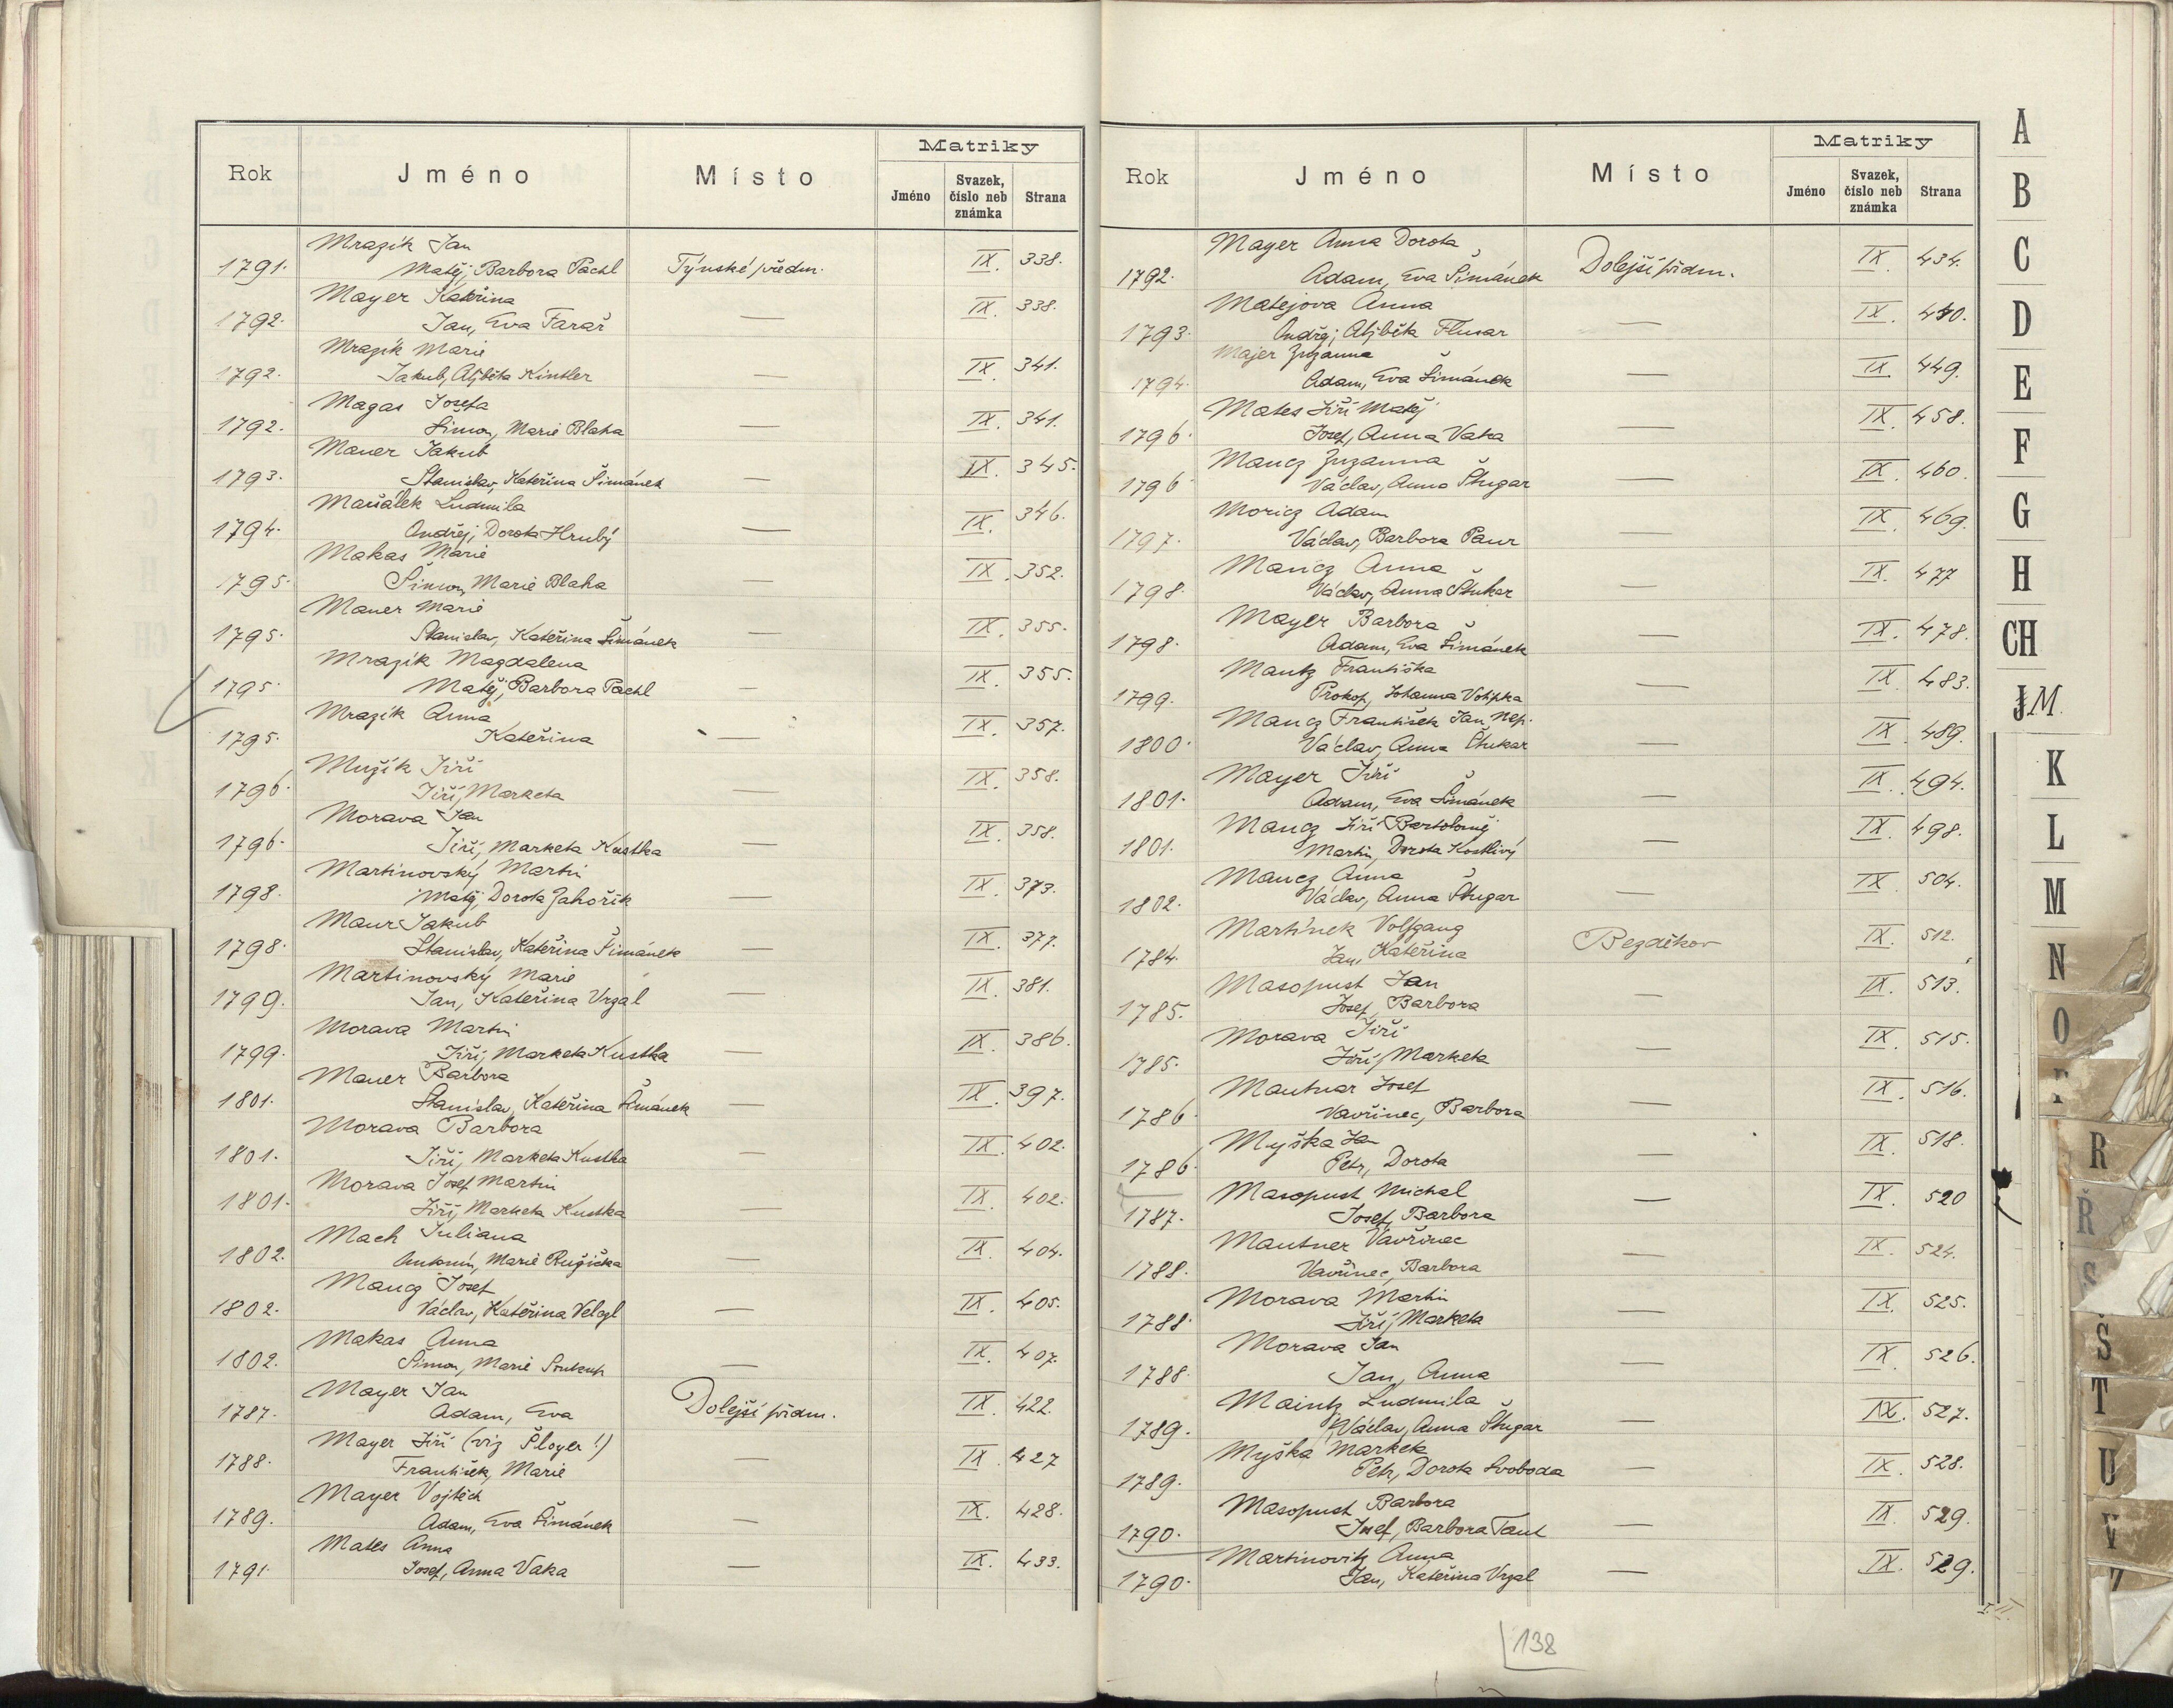 Rok Jméno Místo Matriky
Jméno Svazek, číslo neb známka Strana
Mrazík Jan
1791. Matěj, Barbora Pachl Týnské předm. IX. 338.
Mayer Kateřina
1792. Jan, Eva Farař — IX. 338.
Mrazík Marie
1792. Jakub, Alžběta Kintler — IX. 341.
Magas Josefa
1792. Šimon, Marie Blaha — IX. 341.
Mauer Jakub
1793. Stanislav, Kateřina Šimánek — IX. 345.
Maršálek Ludmila
1794. Ondřej, Dorota Hrubý — IX. 346.
Makas Marie
1795. Šimon, Marie Blaha — IX. 352.
Mauer Marie
1795. Stanislav, Kateřina Šimánek — IX. 355.
Mrazík Magdalena
1795. Matěj, Barbora Pachl — IX. 355.
Mrazík Anna
1795. Kateřina — IX. 357.
Mužík Jiří
1796. Jiří, Marketa — IX. 358.
Morava Jan
1796. Jiří, Marketa Kustka — IX. 358.
Martinovský Martin
1798. Matěj, Dorota Zahořík — IX. 373.
Maur Jakub
1798. Stanislav, Kateřina Šimánek — IX. 377.
Martinovský Marie
1799. Jan, Kateřina Vrzal — IX. 381.
Morava Martin
1799. Jiří, Marketa Kustka — IX. 386.
Mauer Barbora
1801. Stanislav, Kateřina Šimánek — IX. 397.
Morava Barbora
1801. Jiří, Marketa Kustka — IX. 402.
Morava Josef Martin
1801. Jiří, Marketa Kustka — IX. 402.
Mach Juliana
1802. Antonín, Marie Růžička — IX. 404.
Maucz Josef
1802. Václav, Kateřina Velogl — IX. 405.
Makas Anna
1802. Šimon, Marie Soukup — IX. 407.
Mayer Jan
1787. Adam, Eva Dolejší předm. IX. 422.
Mayer Jiří (viz Šloyer!)
1788. František, Marie — IX. 427
Mayer Vojtěch
1789. Adam, Eva Šimánek — IX. 428.
Mates Anna
1791. Josef, Anna Vaka — IX. 433.
Rok Jméno Místo Matriky
Jméno Svazek, číslo neb známka Strana
Mayer Anna Dorota
1792. Adam, Eva Šimánek Dolejší předm. IX. 434.
Matejova Anna
1793. Ondřej, Alžběta Flusar — IX. 440.
Majer Zuzanna
1794. Adam, Eva Šimánek — IX. 449.
Mates Jiří Matěj
1796. Josef, Anna Vaka — IX. 458.
Maucz Zuzanna
1796. Václav, Anna Štugar — IX. 460.
Moricz Adam
1797. Václav, Barbora Paur — IX. 469.
Maucz Anna
1798. Václav, Anna Štukar — IX. 477
Mayer Barbora
1798. Adam, Eva Šimánek — IX. 478.
Mautz Františka
1799. Prokop, Johanna Votipka — IX. 483.
Maucz František Jan Nep.
1800. Václav, Anna Štukar — IX. 489.
Mayer Jiří
1801. Adam, Eva Šimánek — IX. 494.
Maucz Jiří Bartoloměj
1801. Martin, Dorota Kostlivý — IX. 498.
Maucz Anna
1802. Václav, Anna Štugar — IX. 504.
Martínek Volfgang
1784. Jan, Kateřina Bezděkov IX. 512.
Masopust Jan
1785. Josef, Barbora — IX. 513.
Morava Jiří
1785. Jiří, Marketa — IX. 515.
Mautnar Josef
1786. Vavřinec, Barbora — IX. 516.
Myška Jan
1786. Petr, Dorota — IX. 518.
Masopust Michal
1787. Josef, Barbora — IX. 520
Mautner Vavřinec
1788. Vavřinec, Barbora — IX. 524.
Morava Martin
1788. Jiří, Marketa — IX. 525.
Morava Jan
1788. Jan, Anna — IX. 526.
Maintz Ludmila
1789. Václav, Anna Štugar — IX. 527.
Myška Market
1789. Petr, Dorota Svoboda — IX. 528.
Masopust Barbora
1790. Josef, Barbora Taut — IX. 529.
Martinovitz Anna
1790. Jan, Kateřina Vrzal — IX. 529.
138
A
B
C
D
E
F
G
H
CH
J M.
K
L
M
N
O
P
R
Ř
S
Š
T
U
V
I. II.